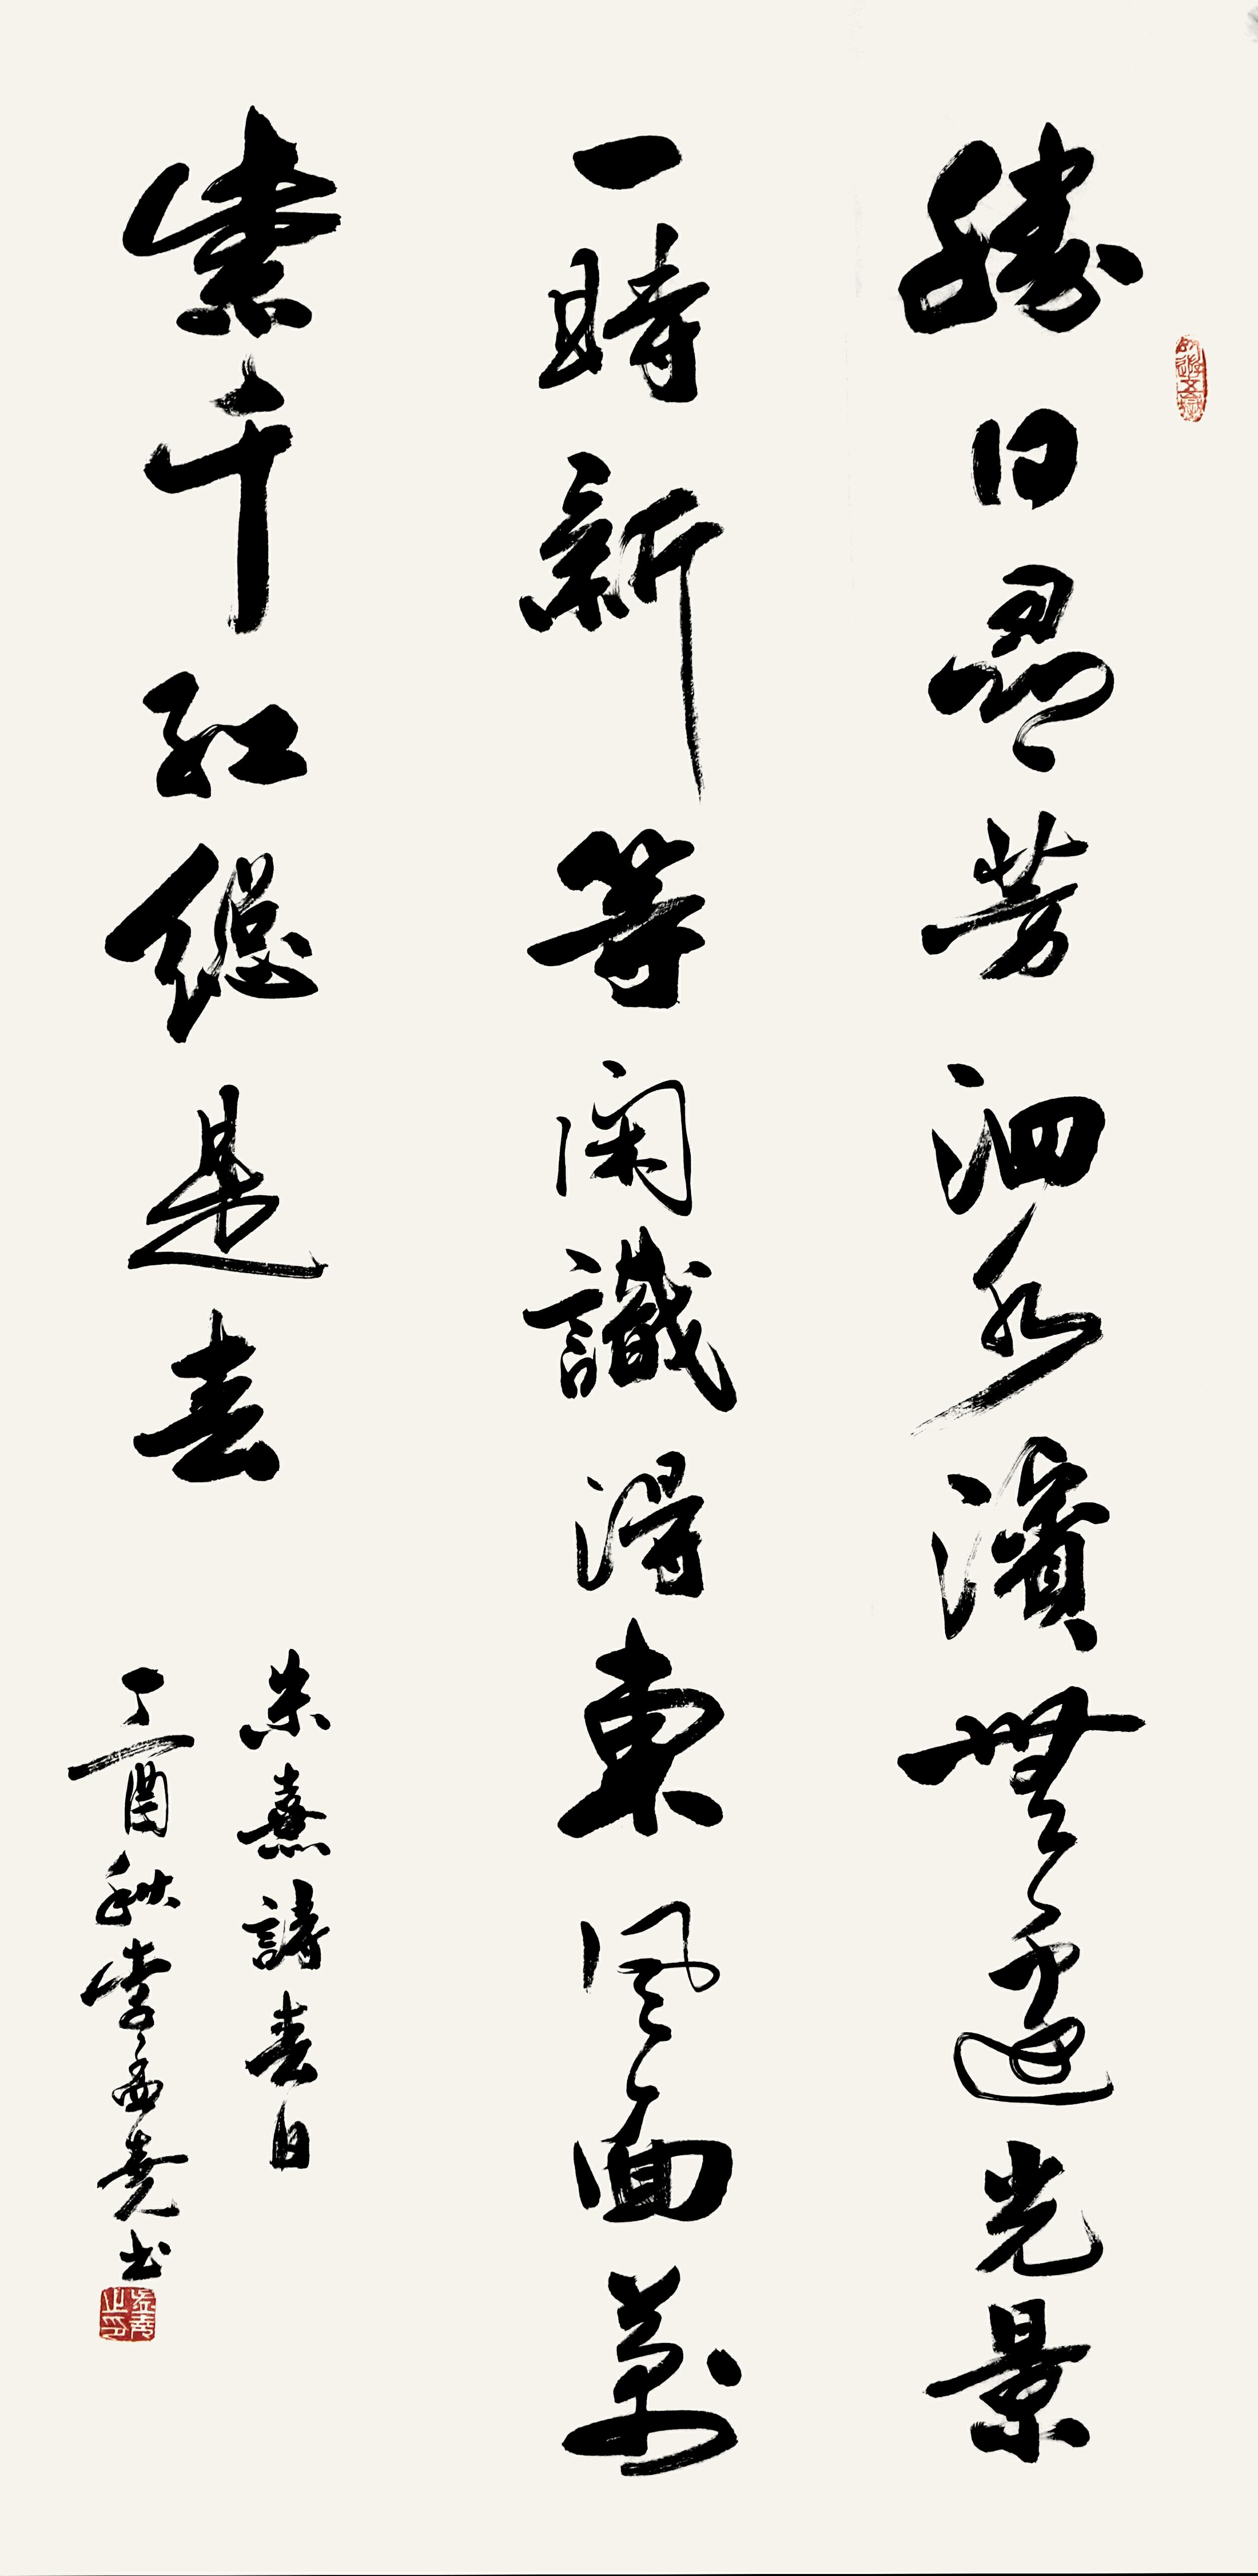 勝日尋芳泗水濱無邊光景
一時新等閑識得東風面萬
紫千紅總是春
朱熹詩春日
丁酉秋李孟尧书